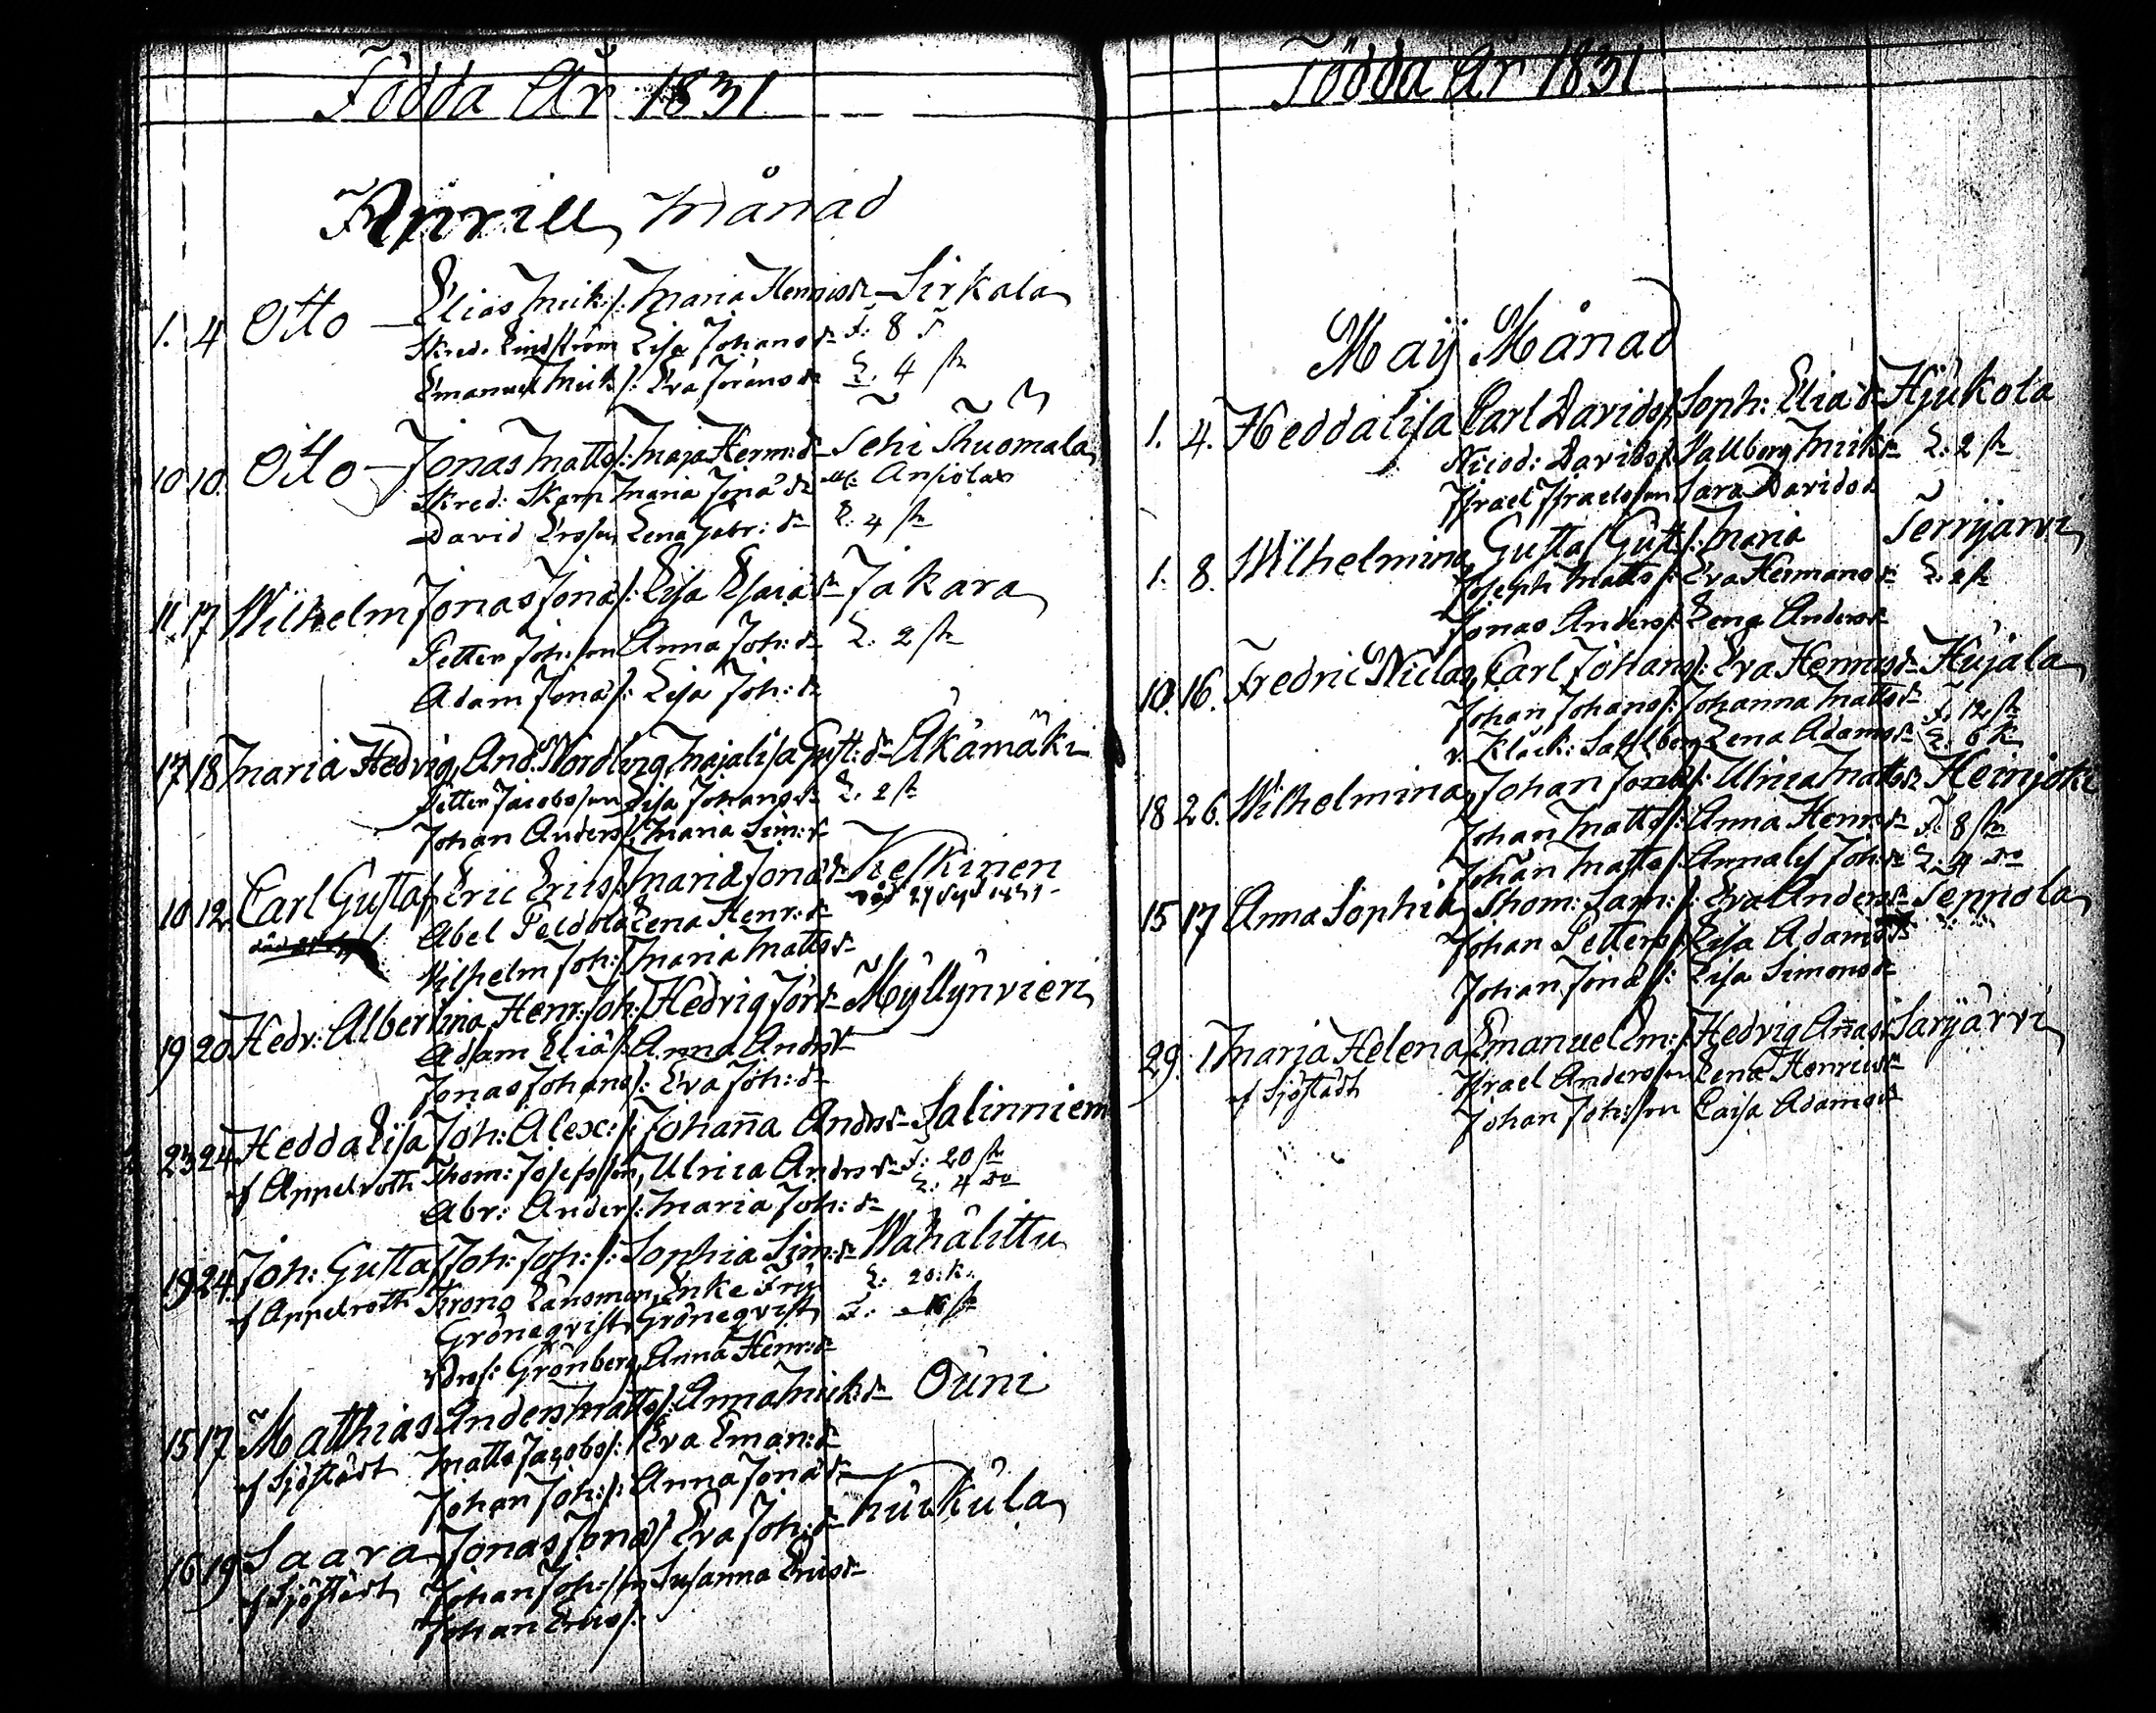 Födda År 1831
Aprill Månad
1. 4 Otto Elias Mick:s: Maria Henricsdr Sirkala
Skred. Lindström Lisa Johansdr F: 8
Emanuel Mick:s: Eva Jöransdr L. 4 st
10 10. Otto Jonas Matts: Maja Herm:dr
Skred: Skarn Maria Jona dr
David Ersson Lena Gabr:dr L. 4 st
11 17 Wilhelm Jonas Jonas: Lisa Esaiædr Jakara
Petter Joh:son Anna Joh:dr L. 2 st
Adam Jonas: Lisa Joh:dr
17 18 Maria Hedvig, And. Nordling, Majalisa Gust:dr Äkämäki
Petter Jacobsson Lisa Johansdr L. 2 st
Johan Anders: Maria Sim:dr
10 12 Carl Gustaf, Eric Erics: Maria Jona dr Keskinen
Abel Peldola Lena Henr:dr död 27 Sept 1831
Vilhelm Joh: Maria Mattsdr
19 20 Hedv: Albertina, Henr: Joh: Hedvig Jördr Myllynvieri
Adam Elias: Anna Andrsdr
Jonas Johans: Eva Joh:dr
23 24 Hedda Lisa Joh: Alex:s: Johanna Andrsdr Salinniemi
af Appelroth Thom: Josefsson, Ulrica Andrsdr F: 20 st
Abr: Anders: Maria Joh:dr L: 4 do
19 24. Joh: Gustaf Joh: Joh:s: Sophia Sim:dr Wähälittu
af Appelroth Krono Länsman, Enke Fru L: 20:k.
Gröneqvist, Gröneqvist F: 16 st
Grönberg, Anna Henr:dr
15 17 Matthias Anders Matts: Anna Mick:dr Ouni
af Sjöstedt Matts Jacobs: Eva Eman:dr
Johan Joh:s: Anna Jona dr
16 19 Saara Jonas Jonas: Eva Joh:dr
af Sjöstedt Johan Joh:son Susanna Ericsdr
Johan Erics:
Födda År 1831
Maÿ Månad
1. 4. Hedda Lisa Carl Davids: Soph: Elia dr Hjukola
Nicod: Davids: Vallborg Micksdr L: 2 st
Israel Israelsson Sara Davidsdr
1. 8. Wilhelmina Gustaf Gust:s: Maria
Joseph Matts: Eva Hermansdr L. 2 st
Jonas Anders: Lena Andersdr
10. 16. Fredric Niclas, Carl Johans: Eva Henricsdr Hujala
Johan Johans: Johanna Mattsdr F. 12 st
v. Klock: Sahlberg Lena Adamsdr L: 6 k
18 26. Wilhelmina, Johan Jonas: Ulrica Mattsdr Heinjoki
Johan Matts: Anna Henr:dr F. 8 st
Johan Matts: Annalis Joh:dr L: 4 do
15 17 Anna Sophia Thom: Sam:s: Eva Andersdr Seppola
Johan Petters: Lisa Adamsdr
Johan Jonas: Lisa Simonsdr
29. 1 Maria Helena Emanuel Em:s: Hedvig Sarjärvi
af Sjöstedt Israel Andersson Lena Henricsdr
Johan Joh:son Caisa Adamsdr